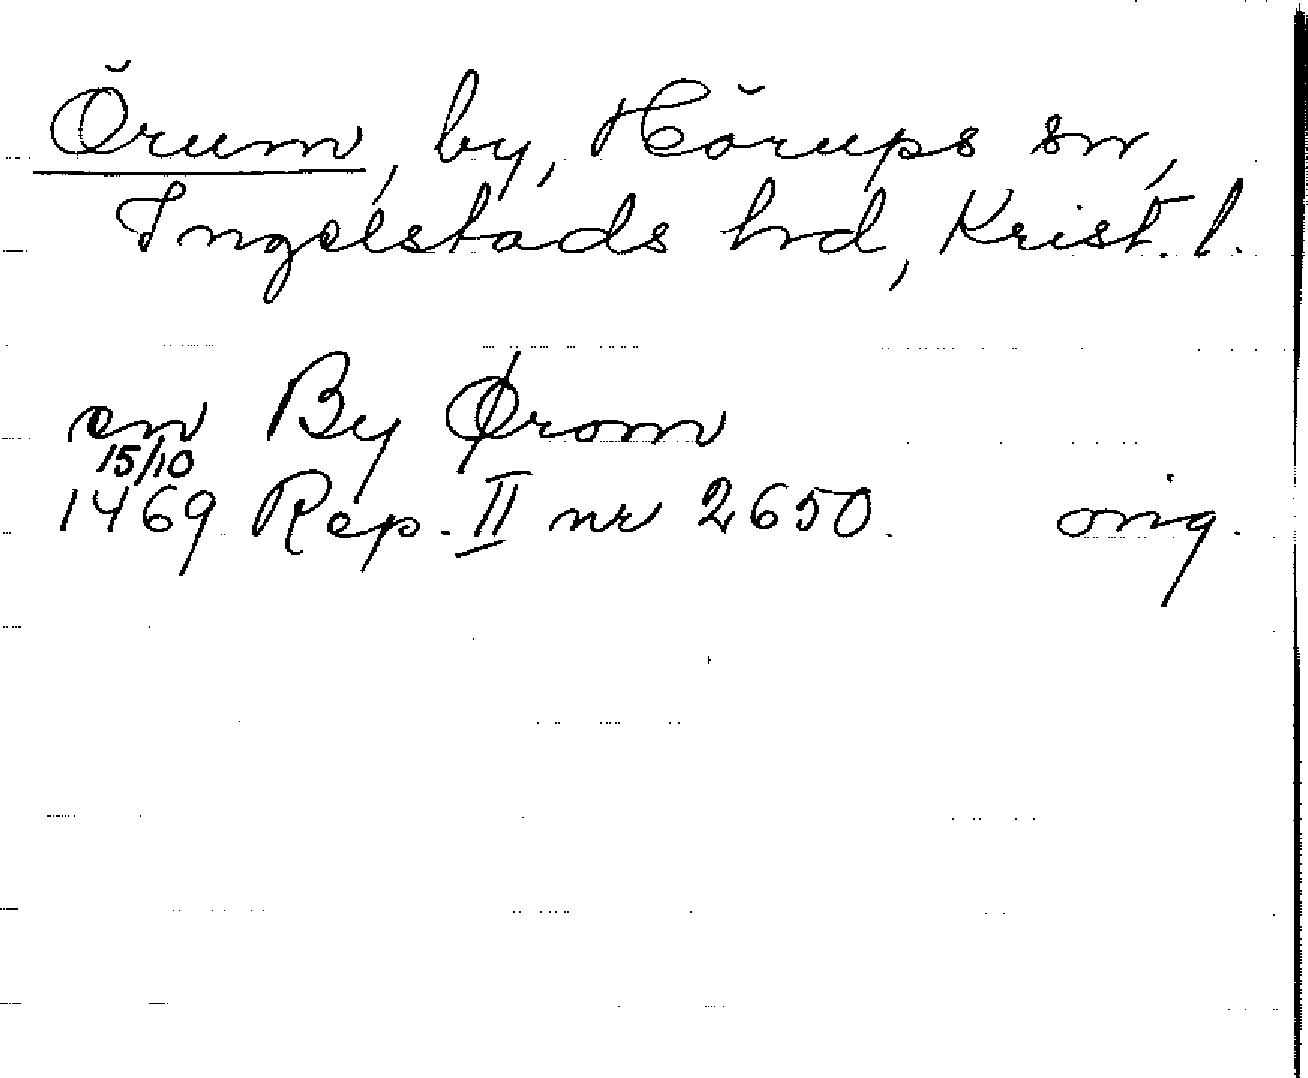 Örum, by, Hörups sn,
Ingelstads hrd, Krist. l.
en By Ørom
15/10
1469 Rep. II nr 2650. orig.